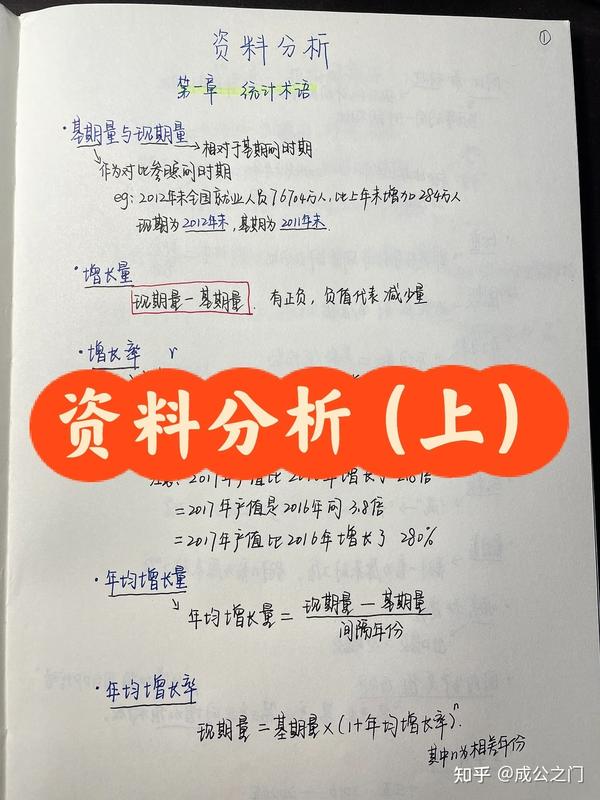 ①
资料分析
第一章 统计术语
·基期量与现期量→相对于基期的时期
作为对比参照的时期
eg: 2012年末全国就业人员76704万人,比上年末增加284万人
现期为2012年末,基期为2011年末.
·增长量
现期量-基期量. 有正负,负值代表减少量
·增长率 r
资料分析(上)
=2017年产值是2016年的3.8倍
=2017年产值比2016年增长了 280%
·年均增长量
年均增长量 = 现期量-基期量
间隔年份
·年均增长率
现期量=基期量×(1+年均增长率)ⁿ.
其中n为相差年份
知乎 @成公之门